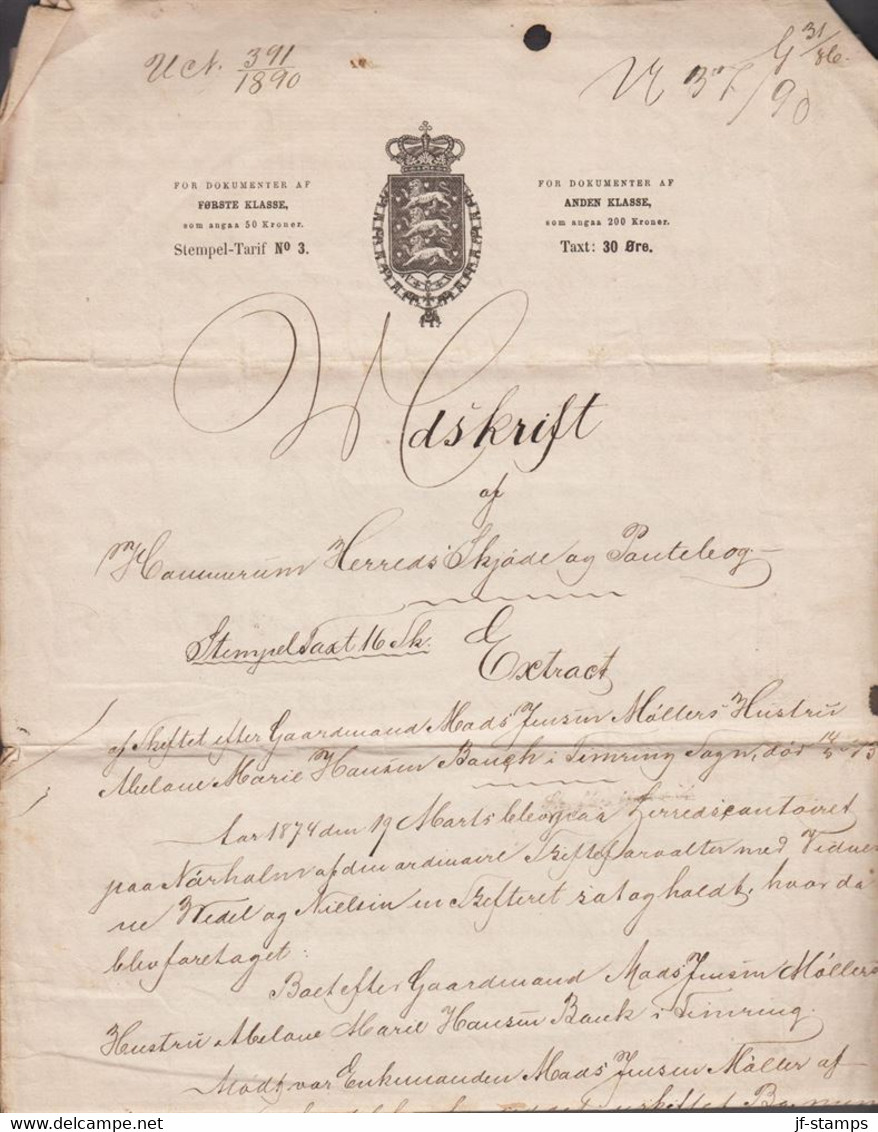 391
1890
31
86.
90
FOR DOKUMENTER AF
FØRSTE KLASSE,
som angaa 50 Kroner.
Stempel-Tarif Nº 3.
FOR DOKUMENTER AF
ANDEN KLASSE,
som angaa 200 Kroner.
Taxt: 30 Øre.
Udskrift
af
Hammerum Herreds Skjøde og Pantebog
Stempeltaxt 16 Sk.
Extract
af Skiftet efter Gaardmand Mads Jensen Möllers Hustru
Abelone Marie Hansen Bauch i Timring Sogn, död
Aar 1874 den 19 Marts blev paa Herredscontoiret
paa Nörholm af den ordinaire Skifteforvalter med Vidner
ne Wedel og Nielsen en Skifteret sat og holdt, hvor da
blev foretaget:
Boet efter Gaardmand Mads Jensen Möllers
Hustru Abelone Marie Hansen Bauk i Timring.
Mödt var Enkemanden Mads Jensen Möller af
www.delcampe.net
jf-stamps